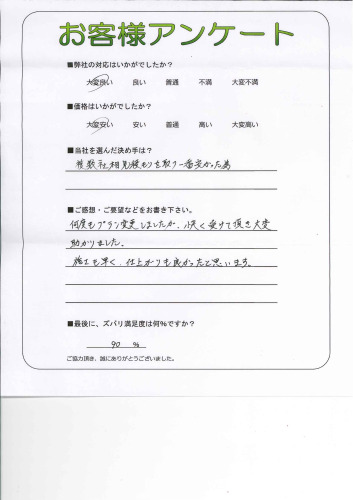 お客様アンケート
■弊社の対応はいかがでしたか？
大変良い 良い 普通 不満 大変不満
■価格はいかがでしたか？
大変安い 安い 普通 高い 大変高い
■当社を選んだ決め手は？
複数社相見積もりを取り一番安かった為
■ご感想・ご要望などをお書き下さい。
何度もプラン変更しましたが、心良く受けて頂き大変
助かりました。
施工も早く、仕上がりも良かったと思います。
■最後に、ズバリ満足度は何％ですか？
90 ％
ご協力頂き、誠にありがとうございました。